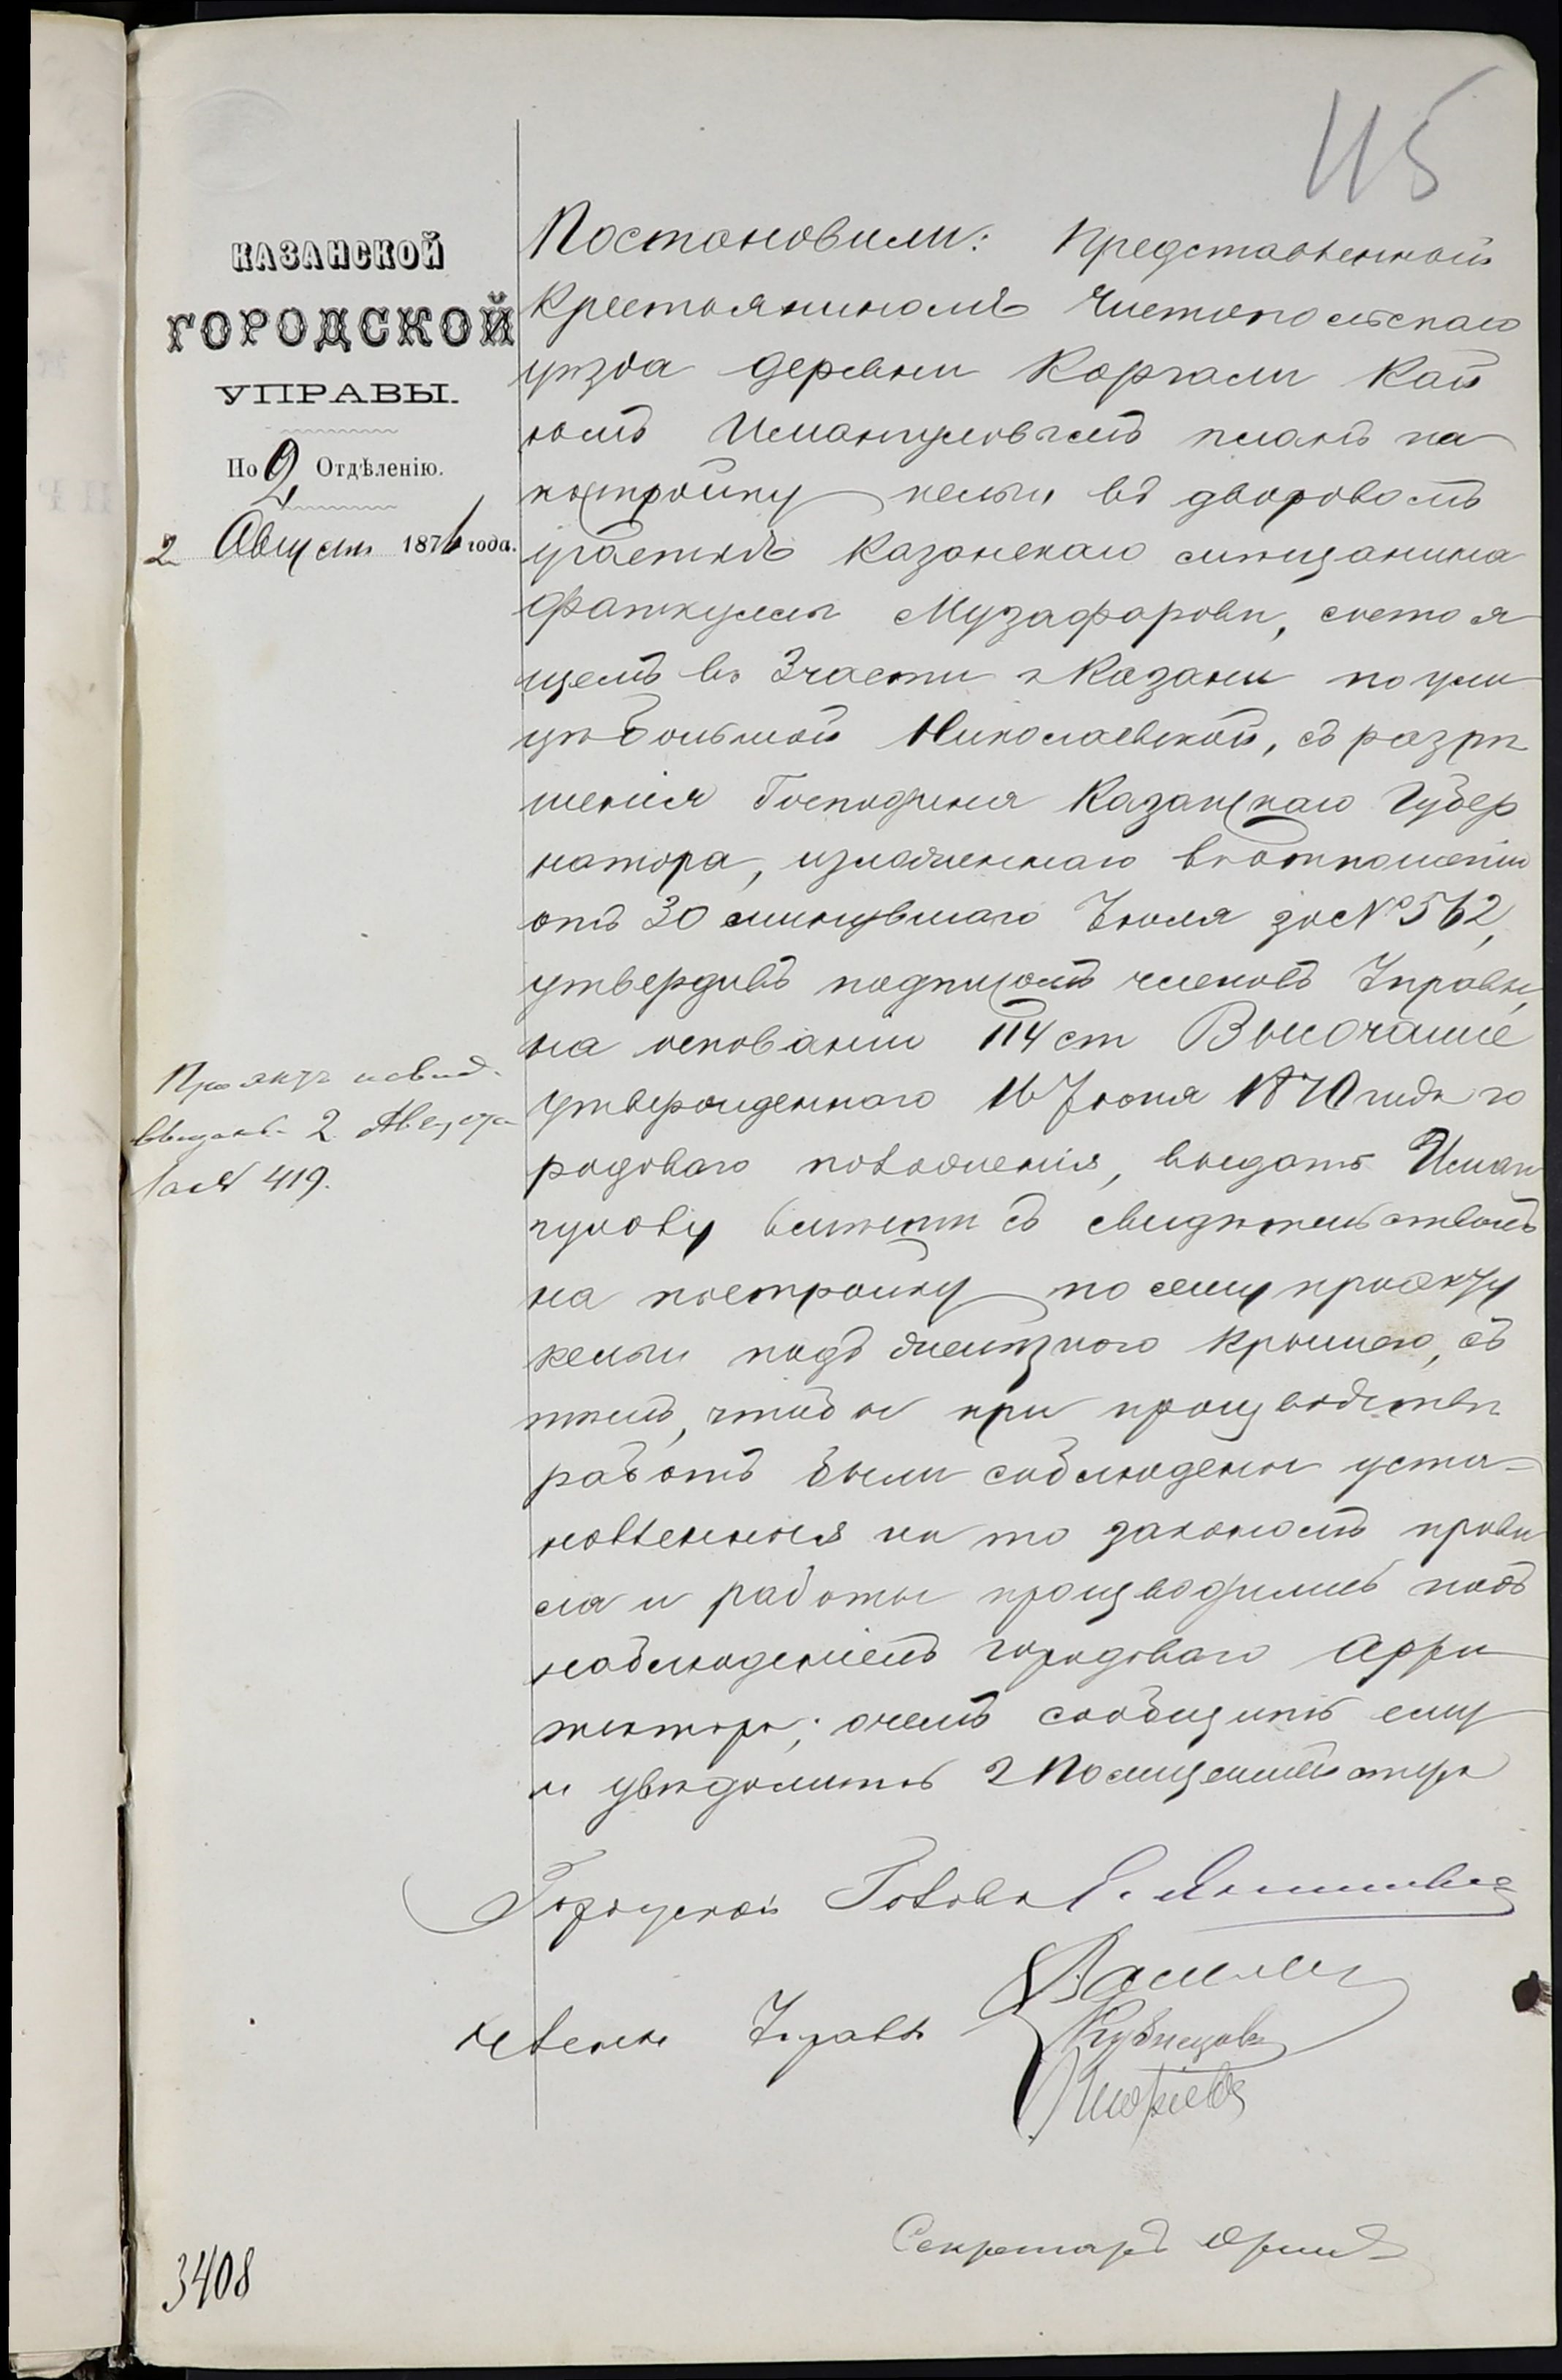 115
КАЗАНСКОЙ
ГОРОДСКОЙ
УПРАВЫ.
По 2 Отдѣленію.
2 Августа 1876 года.
Постановили: Представленной
Крестьяниномъ Чистопольскаго
уѣзда деревни Каргали Кай
юмъ Иманкуловымъ планъ на
постройку кельи въ дворовомъ
участкѣ казанскаго мѣщанина
Фаткуллы Музафарова, состоя
щемъ въ 3 части г Казани по ули
цѣ Большой Николаевской, съ разрѣ
шенія Господина Казанскаго Губер
натора, изложеннаго въ отношеніи
отъ 30 минувшаго Іюля за № 562,
утвердивъ подписомъ членовъ Управы,
на основаніи 114 ст Высочайше
утвержденнаго 16 Іюня 1870 года го
родоваго положенія, выдать Иман
кулову вмѣстѣ съ свидѣтельствомъ
на постройку по сему проэкту
кельи подъ желѣзною крышею, съ
тѣмъ, чтобы при производствѣ
работъ были соблюдены уста-
новленныя на то закономъ прави
ла и работы производились подъ
наблюденіемъ городоваго Архи
тектора; о чемъ сообщить ему
и увѣдомить г Полицеймейстера
Проэктъ и свид.
выданы 2 Августа
за № 419.
Городской Голова
Члены Управы
Кузнецовъ
Секретарь
3408